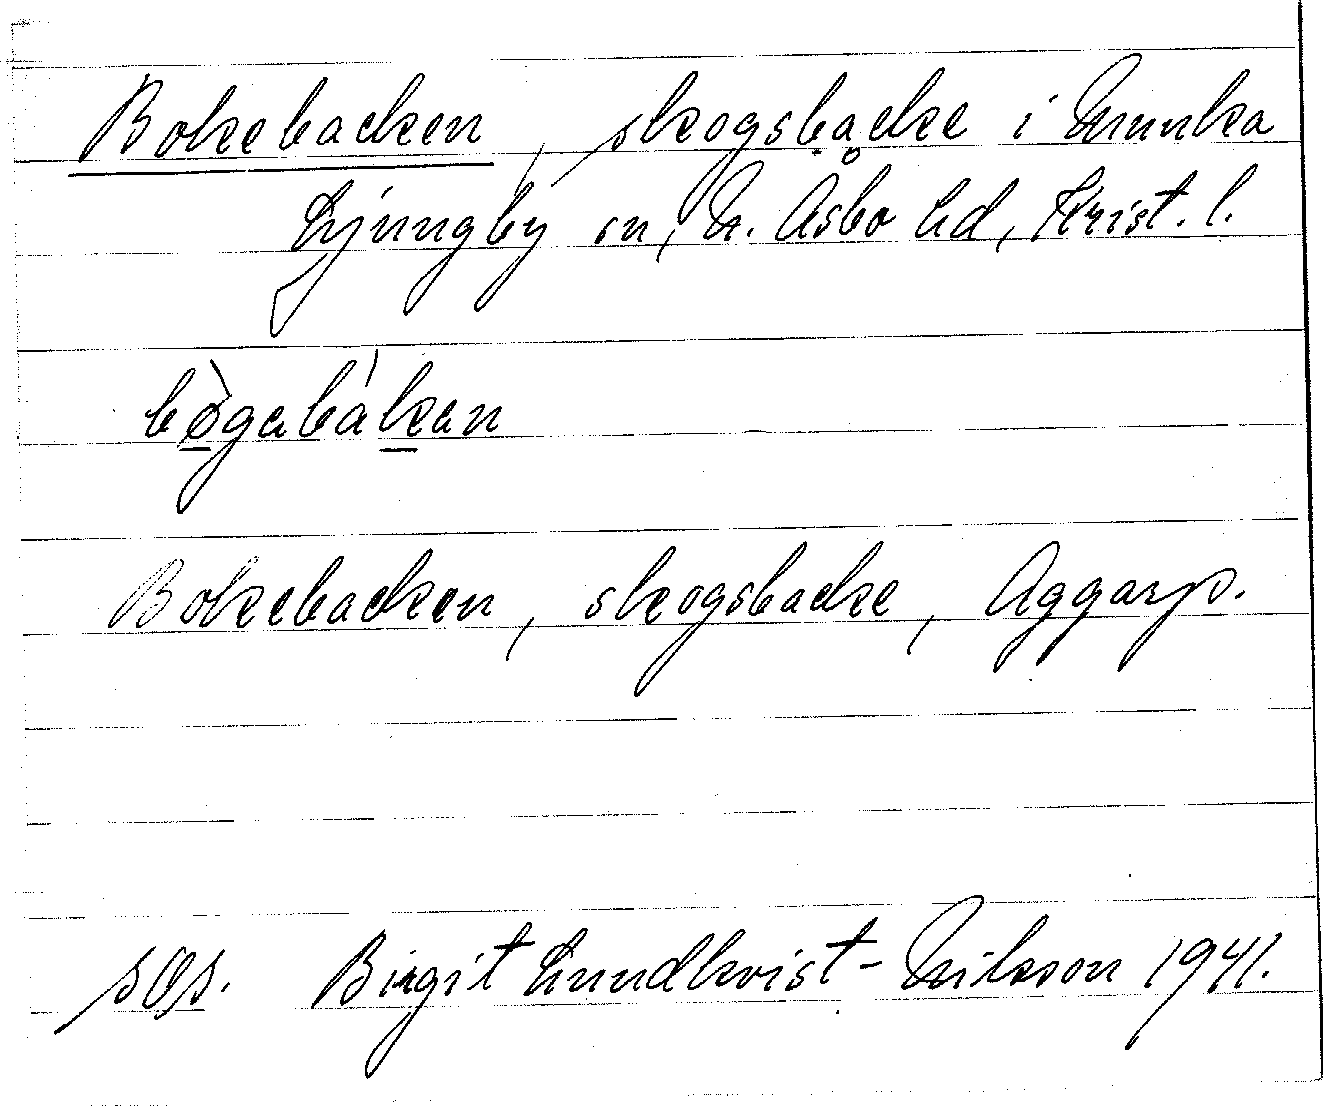 Bokebacken, skogsbacke i Munka
Ljungby sn, N. Åsbo hd, Krist. l.
bø̀gabákan
Bokebacken, skogsbacke, Aggarp.
sOs. Birgit Lundkvist-Nilsson 1941.